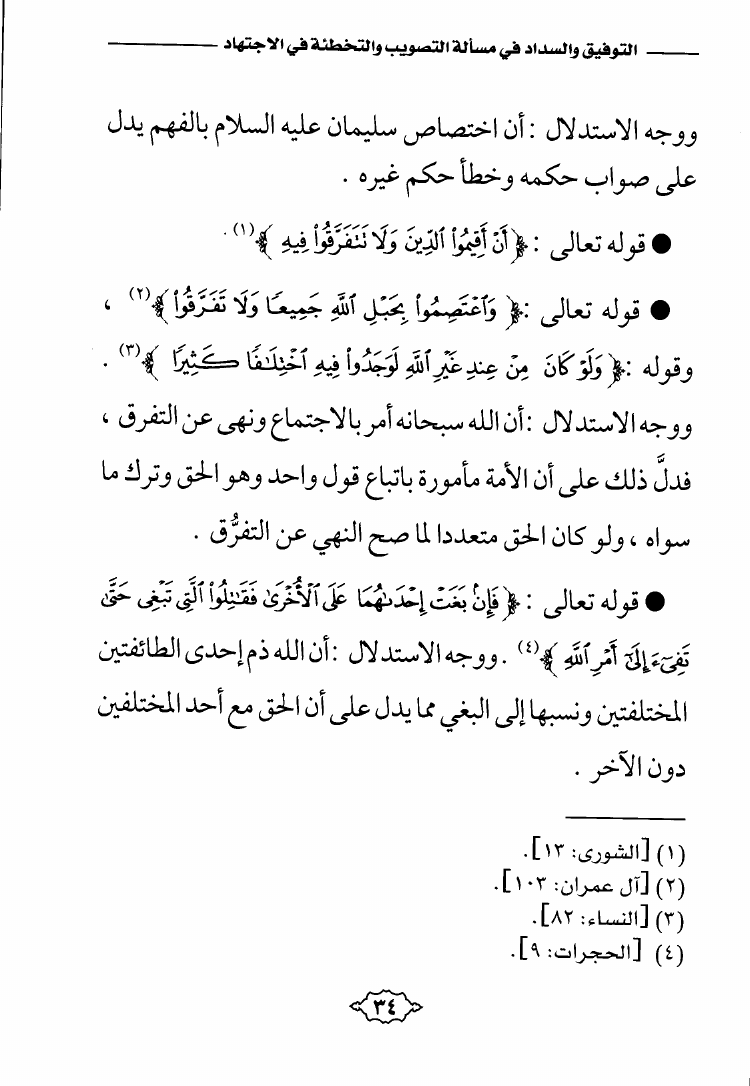 التوفيق والسداد في مسألة التصويب والتخطئة في الاجتهاد
ووجه الاستدلال : أن اختصاص سليمان عليه السلام بالفهم يدل
على صواب حكمه وخطأ حكم غيره .
● قوله تعالى : ﴿ أَنْ أَقِيمُوا۟ ٱلدِّينَ وَلَا تَتَفَرَّقُوا۟ فِيهِ ﴾(١) .
● قوله تعالى : ﴿ وَٱعْتَصِمُوا۟ بِحَبْلِ ٱللَّهِ جَمِيعًا وَلَا تَفَرَّقُوا۟ ﴾(٢) ،
وقوله : ﴿ وَلَوْ كَانَ مِنْ عِندِ غَيْرِ ٱللَّهِ لَوَجَدُوا۟ فِيهِ ٱخْتِلَـٰفًا كَثِيرًا ﴾(٣) .
ووجه الاستدلال : أن الله سبحانه أمر بالاجتماع ونهى عن التفرق ،
فدلَّ ذلك على أن الأمة مأمورة باتباع قول واحد وهو الحق وترك ما
سواه ، ولو كان الحق متعددا لما صح النهي عن التفرُّق .
● قوله تعالى : ﴿ فَإِنۢ بَغَتْ إِحْدَىٰهُمَا عَلَى ٱلْأُخْرَىٰ فَقَـٰتِلُوا۟ ٱلَّتِى تَبْغِى حَتَّىٰ
تَفِىٓءَ إِلَىٰٓ أَمْرِ ٱللَّهِ ﴾(٤) . ووجه الاستدلال : أن الله ذم إحدى الطائفتين
المختلفتين ونسبها إلى البغي مما يدل على أن الحق مع أحد المختلفين
دون الآخر .
(١) [الشورى: ١٣].
(٢) [آل عمران: ١٠٣].
(٣) [النساء: ٨٢].
(٤) [الحجرات: ٩].
٣٤